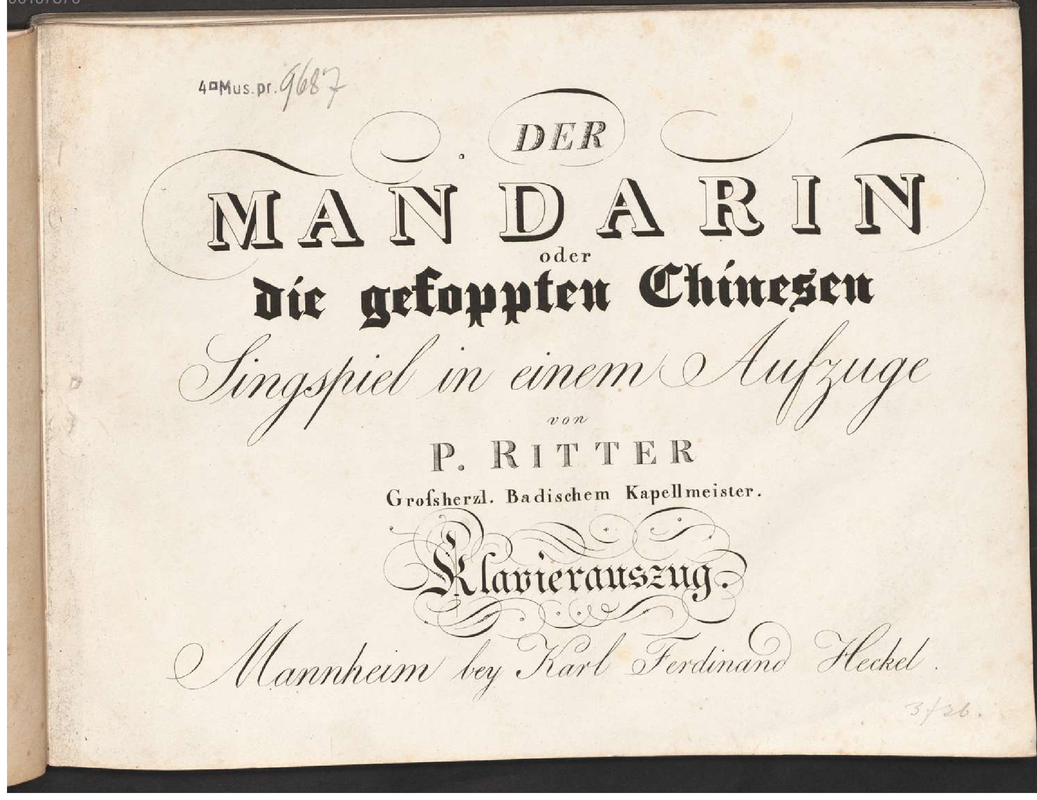 4°Mus.pr. 9687
DER
MANDARIN
oder
die gefoppten Chinesen
Singspiel in einem Aufzuge
von
P. RITTER
Groſsherzl. Badischem Kapellmeister.
Klavierauszug.
Mannheim bey Karl Ferdinand Heckel.